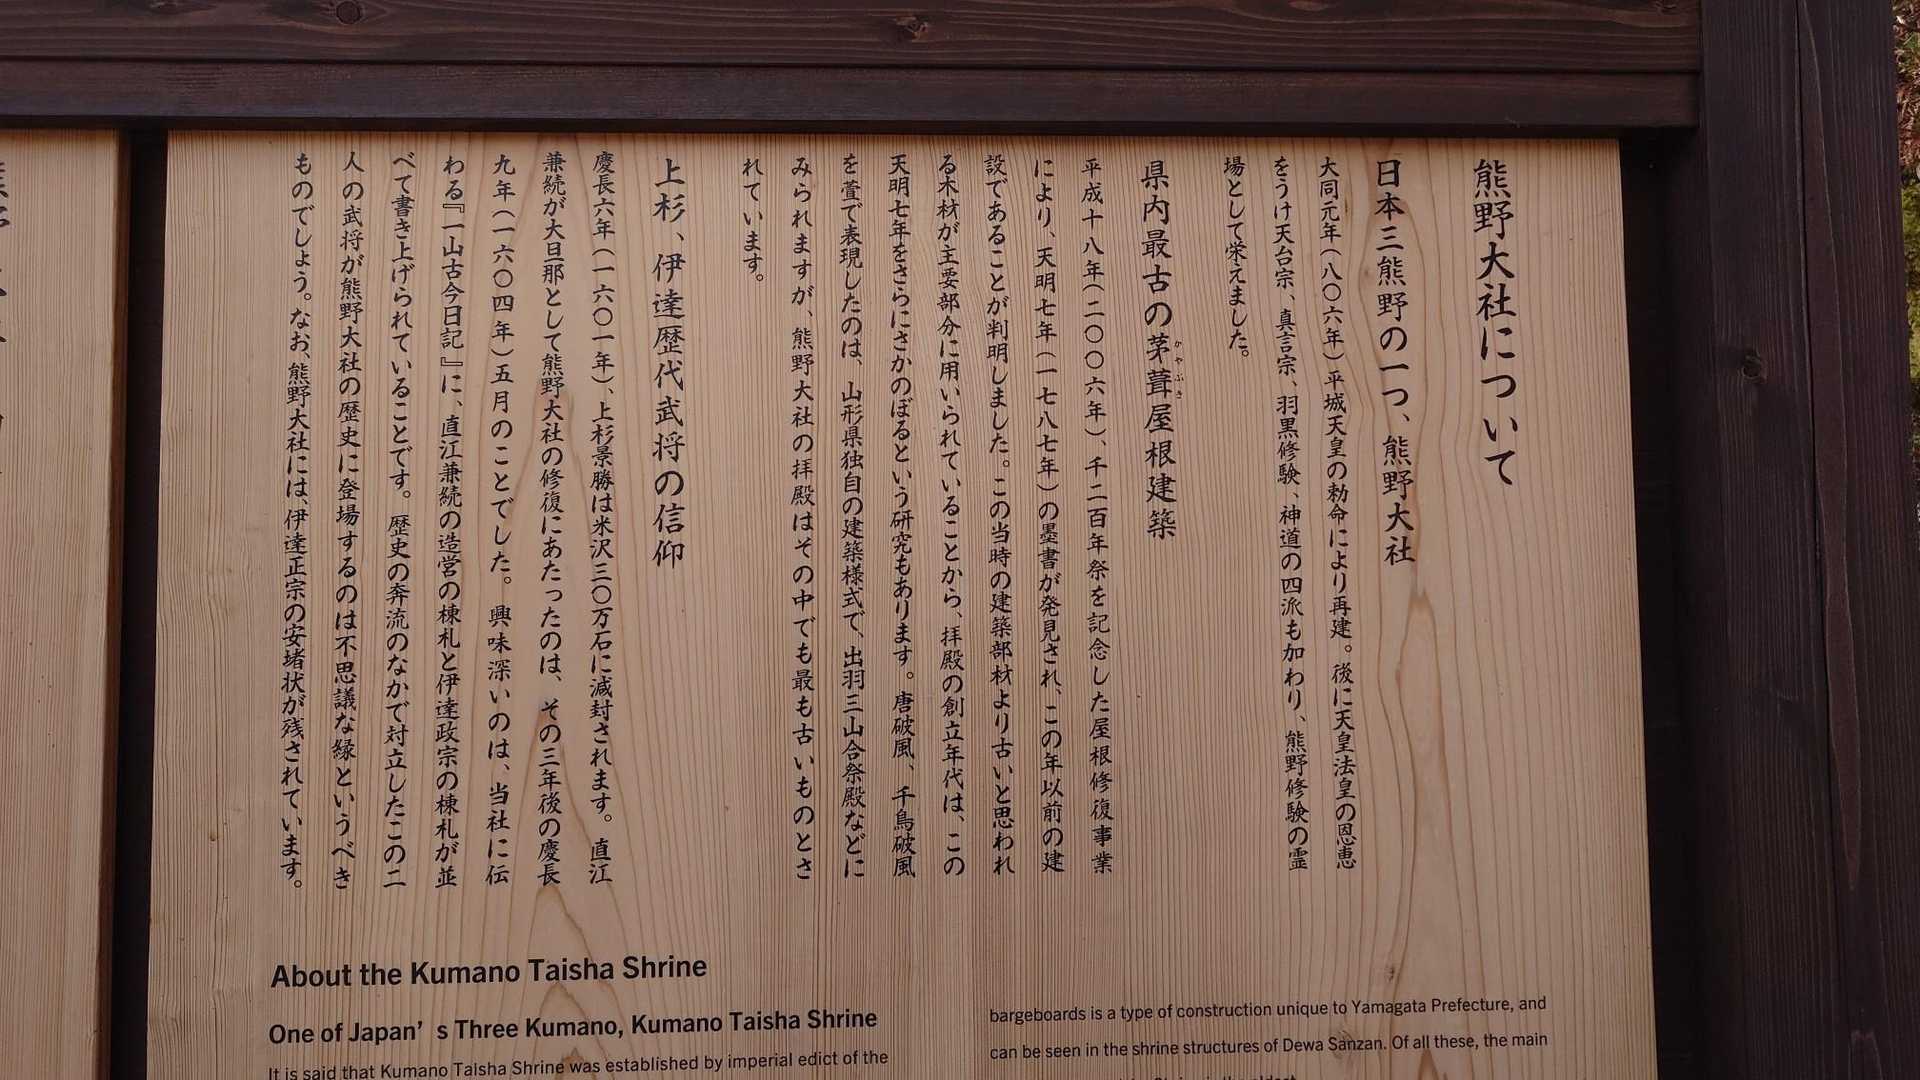 熊野大社について
日本三熊野の一つ、熊野大社
大同元年（八〇六年）平城天皇の勅命により再建。後に天皇法皇の恩恵
をうけ天台宗、真言宗、羽黒修験、神道の四派も加わり、熊野修験の霊
場として栄えました。
県内最古の茅葺屋根建築
かやぶき
平成十八年（二〇〇六年）、千二百年祭を記念した屋根修復事業
により、天明七年（一七八七年）の墨書が発見され、この年以前の建
設であることが判明しました。この当時の建築部材より古いと思われ
る木材が主要部分に用いられていることから、拝殿の創立年代は、この
天明七年をさらにさかのぼるという研究もあります。唐破風、千鳥破風
を萱で表現したのは、山形県独自の建築様式で、出羽三山合祭殿などに
みられますが、熊野大社の拝殿はその中でも最も古いものとさ
れています。
上杉、伊達歴代武将の信仰
慶長六年（一六〇一年）、上杉景勝は米沢三〇万石に減封されます。直江
兼続が大旦那として熊野大社の修復にあたったのは、その三年後の慶長
九年（一六〇四年）五月のことでした。興味深いのは、当社に伝
わる『一山古今日記』に、直江兼続の造営の棟札と伊達政宗の棟札が並
べて書き上げられていることです。歴史の奔流のなかで対立したこの二
人の武将が熊野大社の歴史に登場するのは不思議な縁というべき
ものでしょう。なお、熊野大社には、伊達正宗の安堵状が残されています。
About the Kumano Taisha Shrine
One of Japan’s Three Kumano, Kumano Taisha Shrine
It is said that Kumano Taisha Shrine was established by imperial edict of the
bargeboards is a type of construction unique to Yamagata Prefecture, and
can be seen in the shrine structures of Dewa Sanzan. Of all these, the main